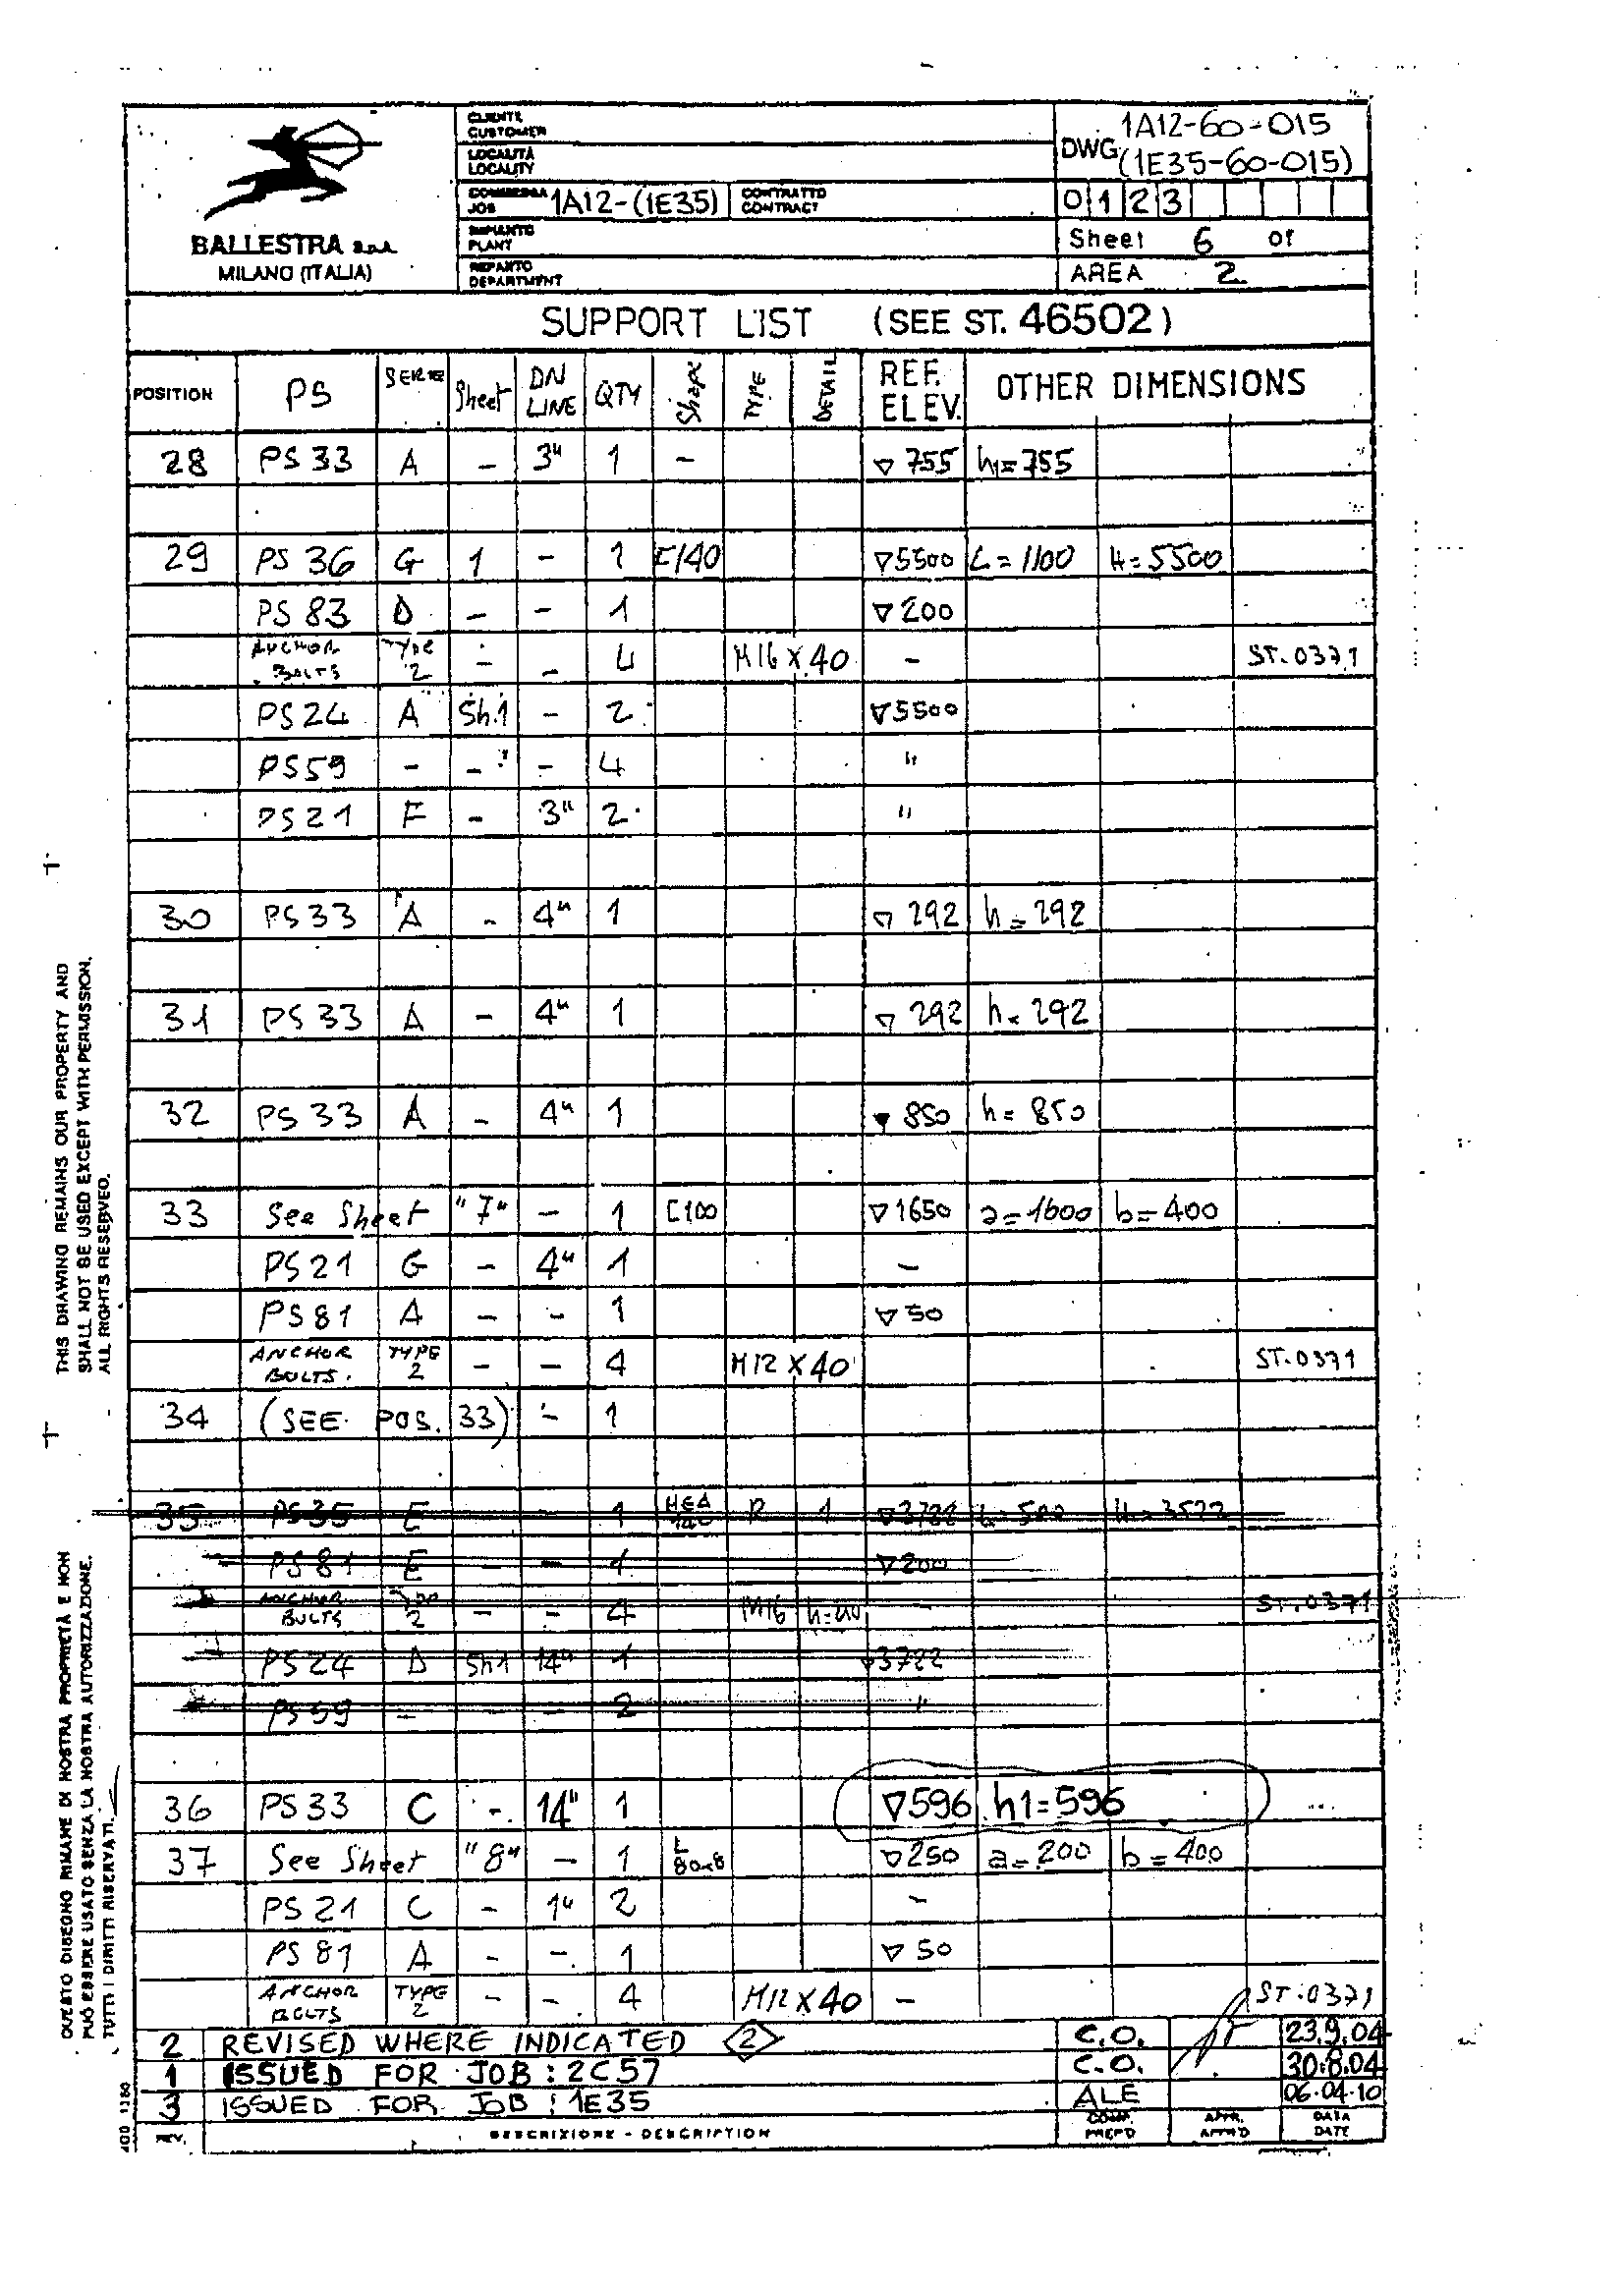 BALLESTRA S.p.A.
MILANO (ITALIA)
CLIENTE
CUSTOMER
LOCALITÀ
LOCALITY
COMMESSA
JOB 1A12-(1E35)
CONTRATTO
CONTRACT
IMPIANTO
PLANT
REPARTO
DEPARTMENT
DWG. 1A12-60-015
(1E35-60-015)
0 1 2 3
Sheet 6 of
AREA 2
SUPPORT LIST (SEE ST. 46502)
POSITION PS SERIE Sheet DN LINE QTY Shape TYPE DETAIL REF. ELEV. OTHER DIMENSIONS
28 PS 33 A - 3" 1 - ▽ 755 h1=755
29 PS 36 G 1 - 1 E140 ▽5500 L=1100 H=5500
PS 83 D - - 1 ▽200
ANCHOR BOLTS TYPE 2 - - 4 M16 X 40 - ST.0371
PS24 A Sh.1 - 2 ▽5500
PS59 - - - 4 "
PS21 F - 3" 2 "
30 PS33 A - 4" 1 ▽ 292 h=292
31 PS33 A - 4" 1 ▽ 292 h=292
32 PS33 A - 4" 1 ▼ 850 h=850
33 See Sheet "7" - 1 [100 ▽1650 a=1600 b=400
PS21 G - 4" 1 -
PS81 A - - 1 ▽50
ANCHOR BOLTS. TYPE 2 - - 4 M12 X 40 ST.0371
34 (SEE POS. 33) - 1
35 PS35 E 1 HEA R 1 ▽3722
PS81 E - 1 ▽200
ANCHOR BOLTS TYPE 2 - - 4 M16 h=40 - ST.0371
PS24 D Sh1 14" 1 ▽3722
PS59 - - 2 "
36 PS33 C - 14" 1 ▽596 h1=596
37 See Sheet "8" - 1 L 80x8 ▽250 a=200 b=400
PS21 C - 1" 2 -
PS81 A - - 1 ▽50
ANCHOR BOLTS TYPE 2 - - 4 M12 X 40 - ST.0371
2 REVISED WHERE INDICATED 2 C.O. 23.9.04
1 ISSUED FOR JOB: 2C57 C.O. 30.8.04
3 ISSUED FOR JOB: 1E35 ALE 06.04.10
REV. DESCRIZIONE - DESCRIPTION COMP. PREP'D APPR. APPR'D DATA DATE
THIS DRAWING REMAINS OUR PROPERTY AND
SHALL NOT BE USED EXCEPT WITH PERMISSION.
ALL RIGHTS RESERVED.
QUESTO DISEGNO RIMANE DI NOSTRA PROPRIETÀ E NON
PUÒ ESSERE USATO SENZA LA NOSTRA AUTORIZZAZIONE.
TUTTI I DIRITTI RISERVATI.